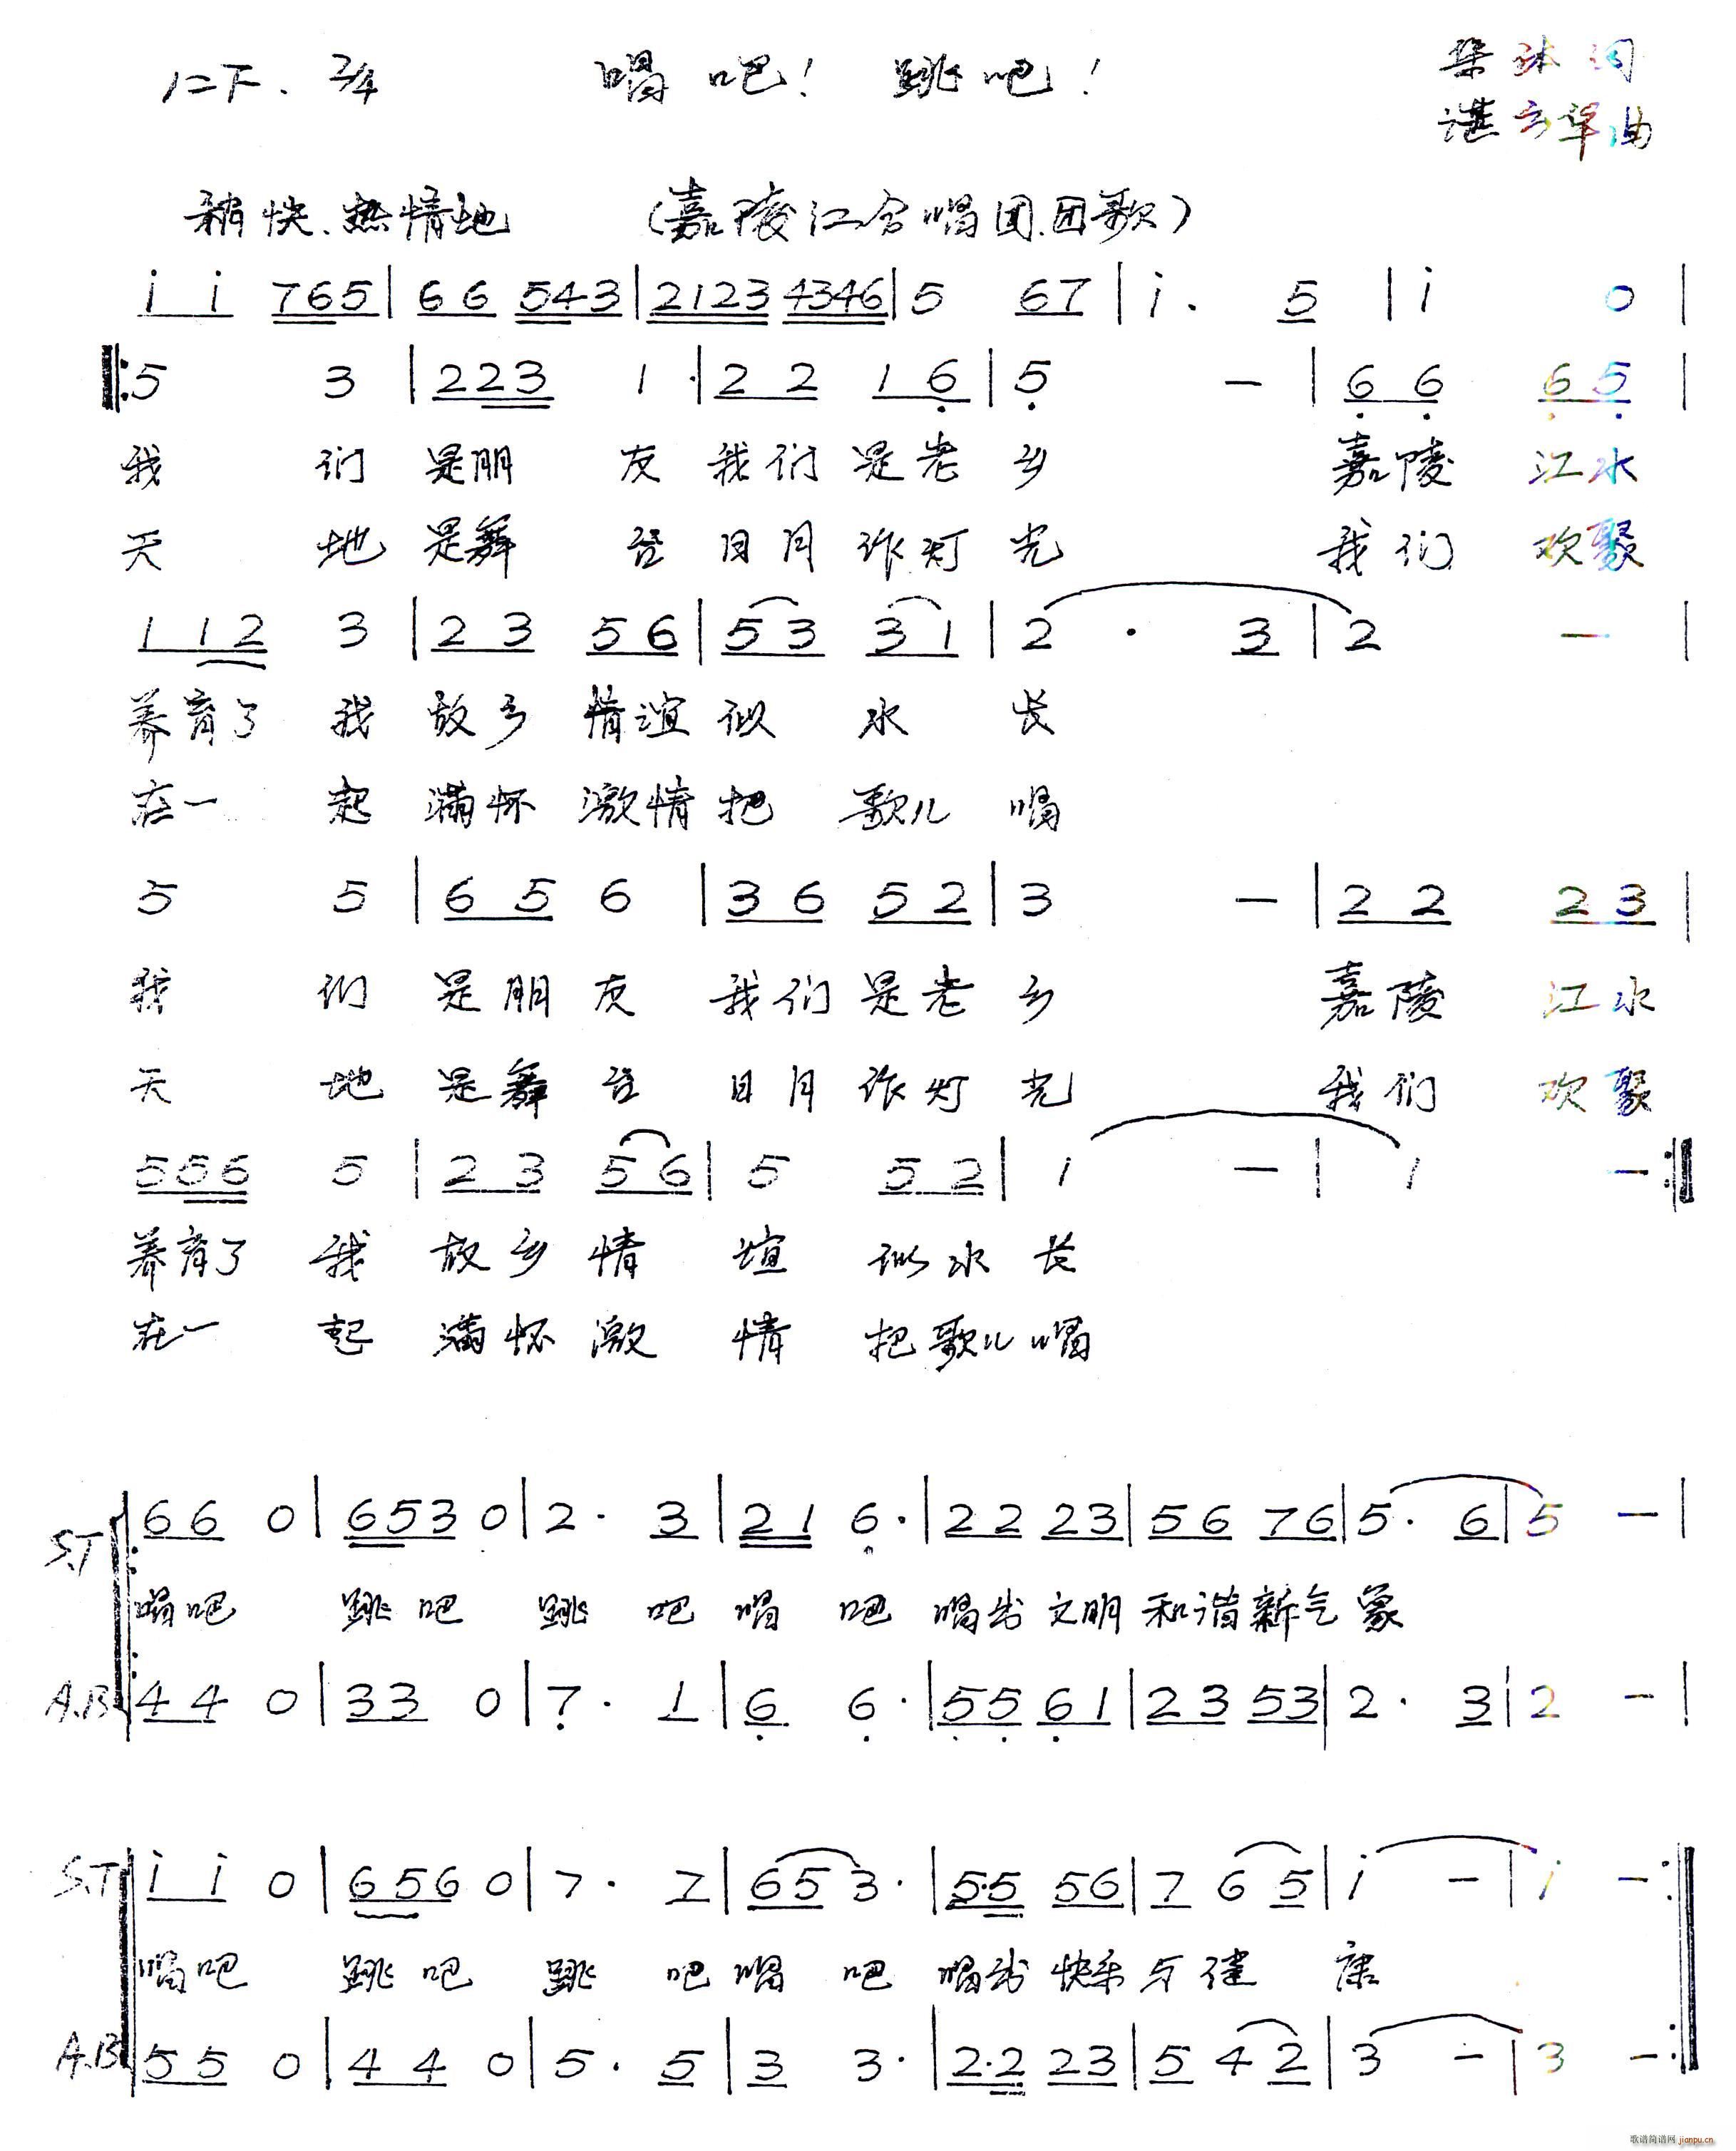 1=F. 2/4 唱吧！跳吧！ 词
曲
稍快、热情地 （嘉陵江合唱团.团歌）
i i 765 | 66 543 | 2123 4346 | 5 67 | i. 5 | i 0 |
‖: 5 3 | 223 1. | 22 16 | 5 – | 66 65 |
我们是朋友我们是老乡 嘉陵江水
天地是舞台日月作灯光 我们欢聚
112 3 | 23 56 | 53 31 | 2. 3 | 2 – |
养育了我故乡情谊似水长
在一起满怀激情把歌儿唱
5 5 | 65 6 | 36 52 | 3 – | 22 23 |
我们是朋友我们是老乡 嘉陵江水
天地是舞台日月作灯光 我们欢聚
556 5 | 23 56 | 5 52 | 1 – | 1 – :‖
养育了我故乡情谊似水长
在一起满怀激情把歌儿唱
S.T 66 0 | 653 0 | 2. 3 | 21 6. | 22 23 | 56 76 | 5. 6 | 5 – |
唱吧 跳吧 跳吧唱吧 唱出文明和谐新气象
A.B 44 0 | 33 0 | 7. 1 | 6 6. | 55 61 | 23 53 | 2. 3 | 2 – |
S.T i i 0 | 656 0 | 7. 7 | 65 3. | 5.5 56 | 7 65 | i – | i – :‖
唱吧 跳吧 跳吧唱吧 唱出快乐与健康
A.B 55 0 | 44 0 | 5. 5 | 3 3. | 2.2 23 | 5 42 | 3 – | 3 – :‖
歌谱简谱网 jianpu.cn